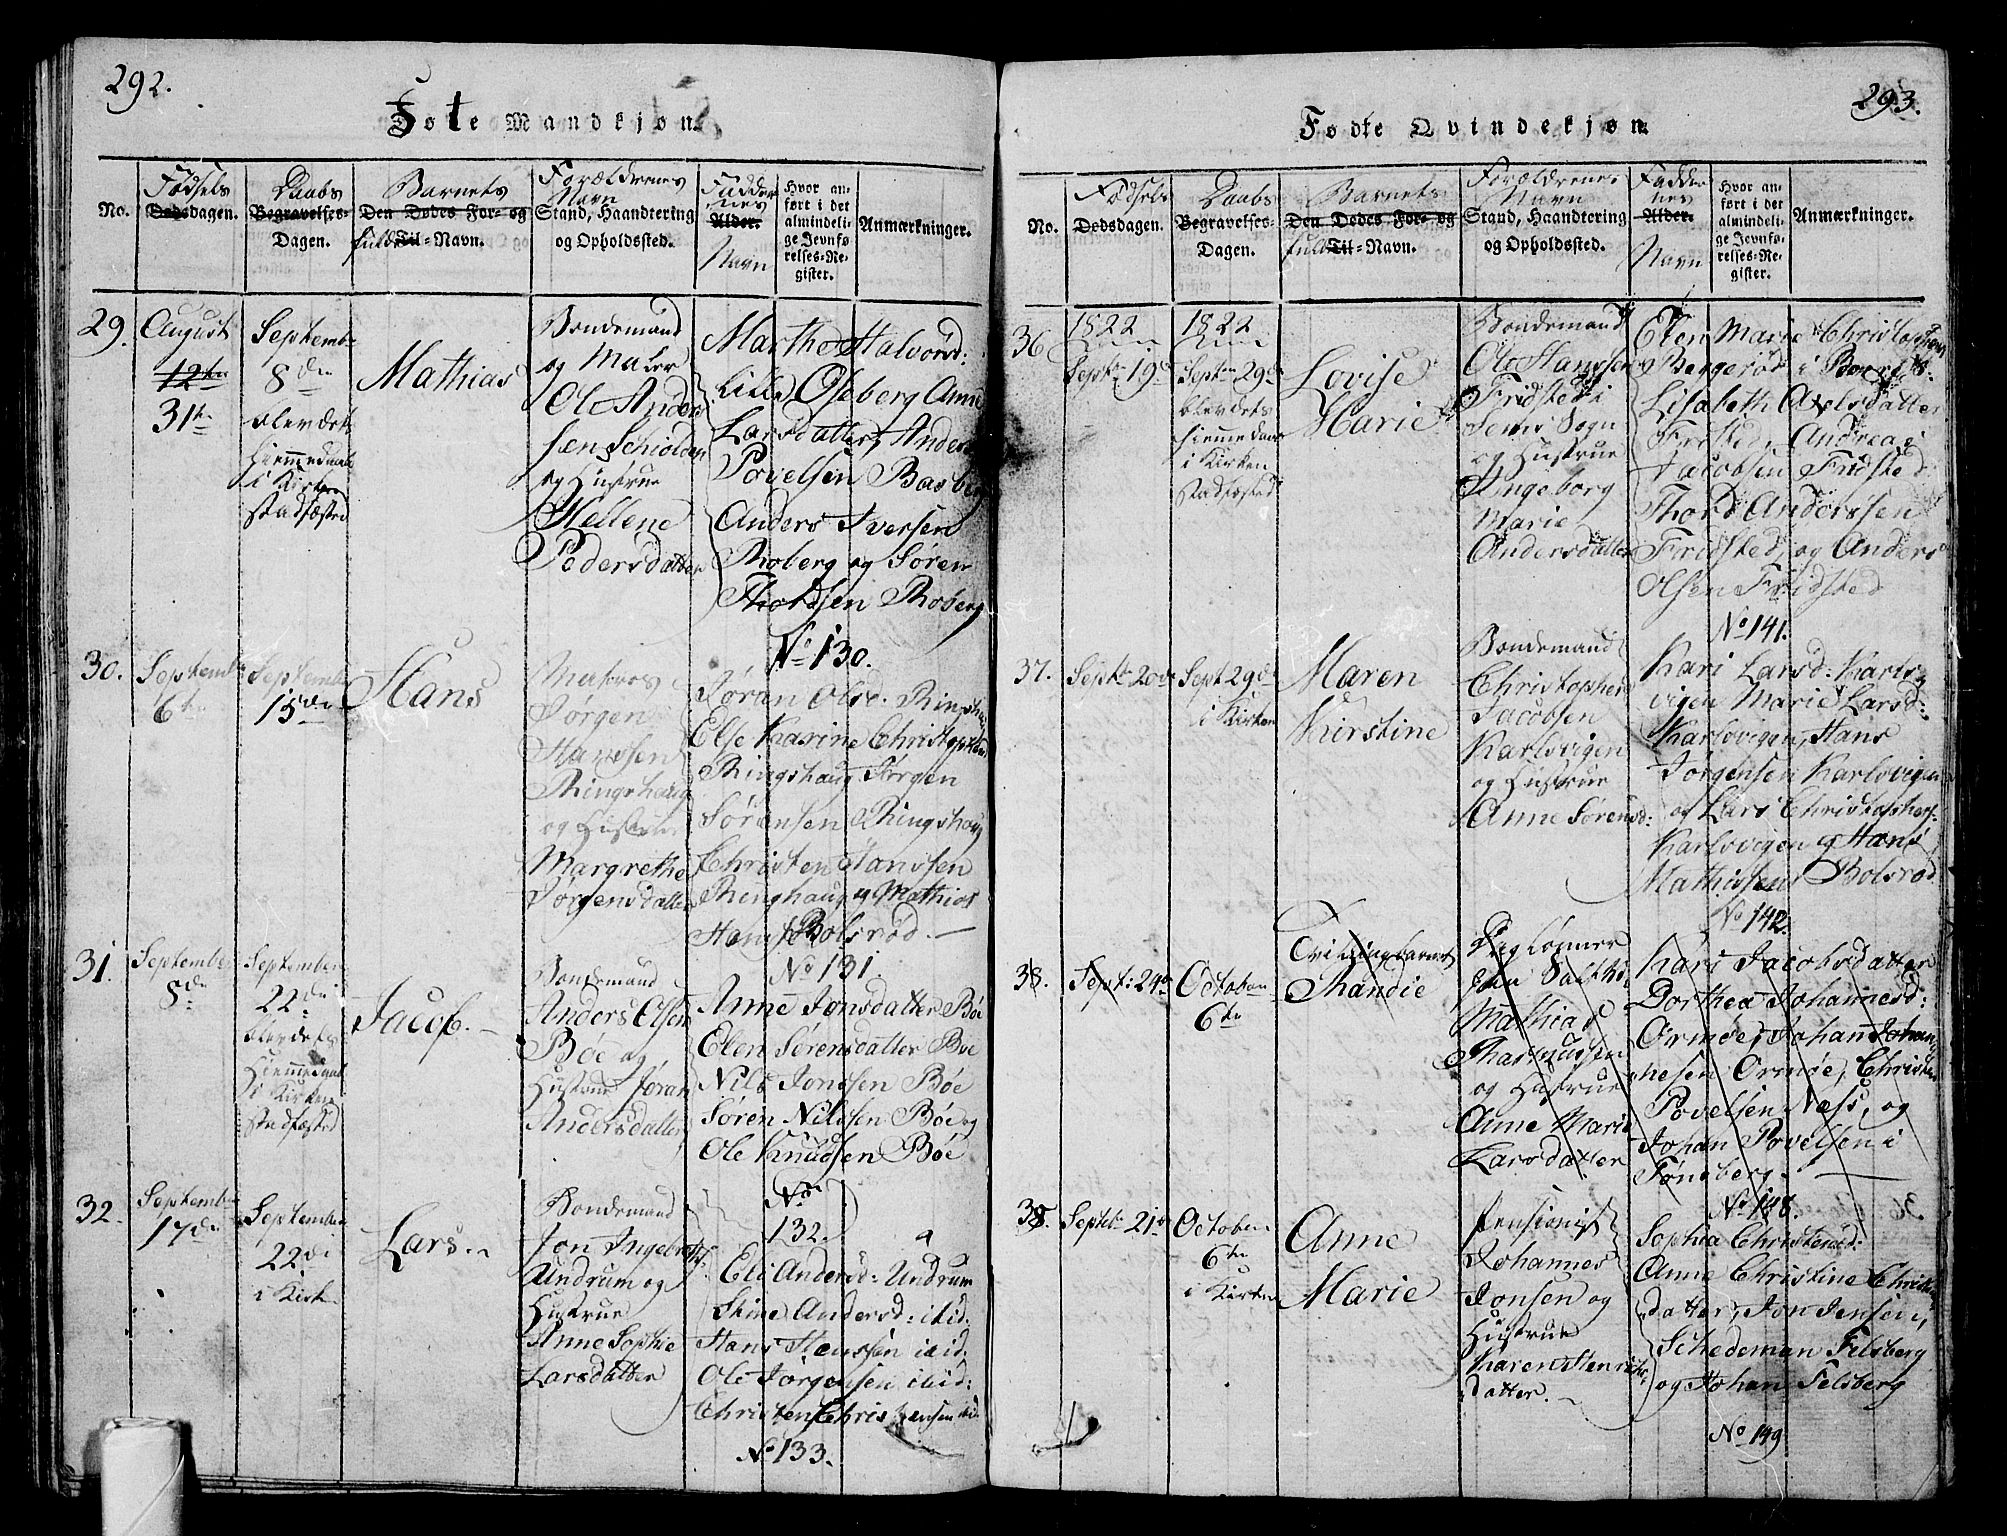 292.
Føte Mandkjøn.
No.
Fødsels
Dødsdagen.
Daabs
Begravelses-
Dagen.
Barnets
Den Dødes For- og
fulde Til-Navn.
Forældrenes
Navn
Stand, Haandtering
og Opholdssted.
Fadder
nes
Alder.
Navn
Hvor an-
ført i det
almindeli-
ge Jevnfø-
relses-Re-
gister.
Anmærkninger.
29.
August
12te
31te
Septemb.
8de
blev dets
Hiemmedaab
i Kirken
stadfæsted
Mathias
Bondemand
og Maler
Ole Ander
sen Schiolden
og Hustrue
Hellene
Pedersdatter
Marthe Halvorsd:
Lille Oseberg Anne
Larsdatter, Anders
Povelsen Basberg
Anders Iversen
Roberg og Søren
Thordsen Roberg
No 130.
30.
Septemb:
6te
Septemb:
15de
Hans
Matros
Jørgen
Hanssen
Ringshaug
og Hustrue
Margrethe
Jørgensdatter
Jøran Olsd. Ringshaug
Else Karine Christophersd
Ringshaug Jørgen
Sørensen Ringshaug
Christen Hanssen
Ringshaug og Mathias
Hansen Bolsrød. —
No 131.
31.
September
8de
September
22de
blev dets
Hiemmedaab
i Kirken
stadfæsted
Jacob. —
Bondemand
Anders Olsen
Bøe og
Hustrue Jøran
Andersdatter
Anne Jonsdatter Bøe
Elen Sørensdatter Bøe
Nils Jonssen Bøe
Søren Nilssen Bøe og
Ole Knudsen Bøe
No
132.
32.
Septemb
17de
September
22de
i Kirk.
Lars. —
Bondemand
Jon Ingebretsen
Undrum og
Hustrue
Anne Sophie
Larsdatter
Eli Andersd: Undrum
Stine Andersd: ibid.
Hans Hanssen ibid.
Ole Jørgensen ibid:
Christen Christensen ibid.
No 133.
293.
Fødte Qvindekjøn
No.
Fødsels
Dødsdagen.
Daabs
Begravelses-
Dagen.
Barnets
Den Dødes For- og
fulde Til-Navn.
Forældrenes
Navn
Stand, Haandtering
og Opholdssted.
Fadder
nes
Alder.
Navn
Hvor an-
ført i det
almindeli-
ge Jevnfø-
relses-Re-
gister.
Anmærkninger.
36
1822
Septbr 19de
1822
Septbr 29de
blev dets
Hiemmedaab
i Kirken
stadfæsted
Lovise
Marie
Bondemand
Ole Hanssen
Fridsted i
Sems Sogn
og Hustrue
Ingeborg
Marie
Andersdatter
Elen Marie Christophers
Bergerød i
Lisabeth Axelsdatter
Fristed, Andreas
Jacobsen Fridsted
Thord Andersen
Fridsted, og Anders
Olsen Fridsted
No 141.
37.
Septbr 20de
Sept 29de
i Kirken
Maren
Kirstine
Bondemand
Christopher
Jacobsen
Karlsvigen
og Hustrue
Anne Sørensd:
Kari Larsd: Karls
vigen Marie Larsd:
Karlsvigen, Hans
Jørgensen Karlsvigen
og Lars Christophers.
Karlsvigen og Hans
Mathissens Bolsrød
No 142.
38.
Sept: 24de
October
6te
Tvillingbarnet
Thandie
Daglønner
Mathias
Rasmussen
og Hustrue
Anne Marie
Larsdatter
Kari Jacobsdatter
Dorthea Johannesd:
Ormøe, Johan Johan
nesen Ormøe, Christen
Povelsen Næss, og
Johan Povelsen i
Tønsberg. —
No 148.
38.
Septbr 21de
October
6te
i Kirken
Anne
Marie
Pensionist
Johannes
Jonsen og
Hustrue
Karen Henriks
datter. —
Sophia Christensd:
Anne Christine Christens
datter, Jon Jensen i,
Schedeman Felsberg
og Johan Felsberg
No 149